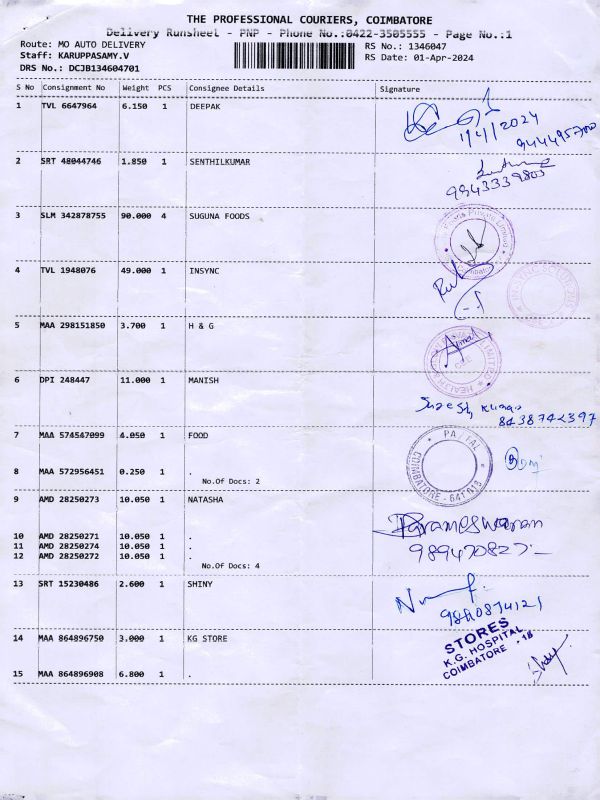 THE PROFESSIONAL COURIERS, COIMBATORE
Delivery Runsheet - PNP - Phone No.:0422-3505555 - Page No.:1
Route: MO AUTO DELIVERY
RS No.: 1346047
Staff: KARUPPASAMY.V
RS Date: 01-Apr-2024
DRS No.: DCJB134604701
S No Consignment No Weight PCS Consignee Details Signature
1 TVL 6647964 6.150 1 DEEPAK
1/4/2024
2 SRT 48044746 1.850 1 SENTHILKUMAR
9943339803
3 SLM 342878755 90.000 4 SUGUNA FOODS
Private Limited
4 TVL 1948076 49.000 1 INSYNC
5 MAA 298151850 3.700 1 H & G
6 DPI 248447 11.000 1 MANISH
Suresh Kumar
8438742397
7 MAA 574547099 4.050 1 FOOD
COIMBATORE - 641
8 MAA 572956451 0.250 1 .
No.Of Docs: 2
9 AMD 28250273 10.050 1 NATASHA
Parameswaran
10 AMD 28250271 10.050 1 .
11 AMD 28250274 10.050 1 .
12 AMD 28250272 10.050 1 .
No.Of Docs: 4
13 SRT 15230486 2.600 1 SHINY
14 MAA 864896750 3.000 1 KG STORE
STORES
K.G. HOSPITAL
COIMBATORE - 18
15 MAA 864896908 6.800 1 .